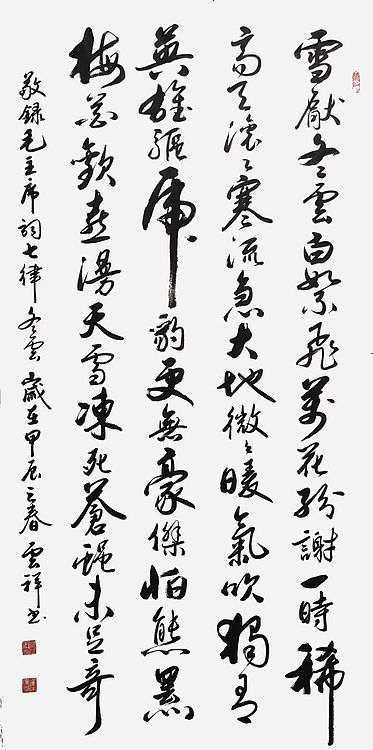 雪壓冬雲白絮飛萬花紛謝一時稀
高天滾々寒流急大地微々暖氣吹獨有
英雄驅虎豹更無豪傑怕熊羆
梅花歡喜漫天雪凍死蒼蠅未足奇
敬錄毛主席詞七律冬雲歲在甲辰之春雲祥書